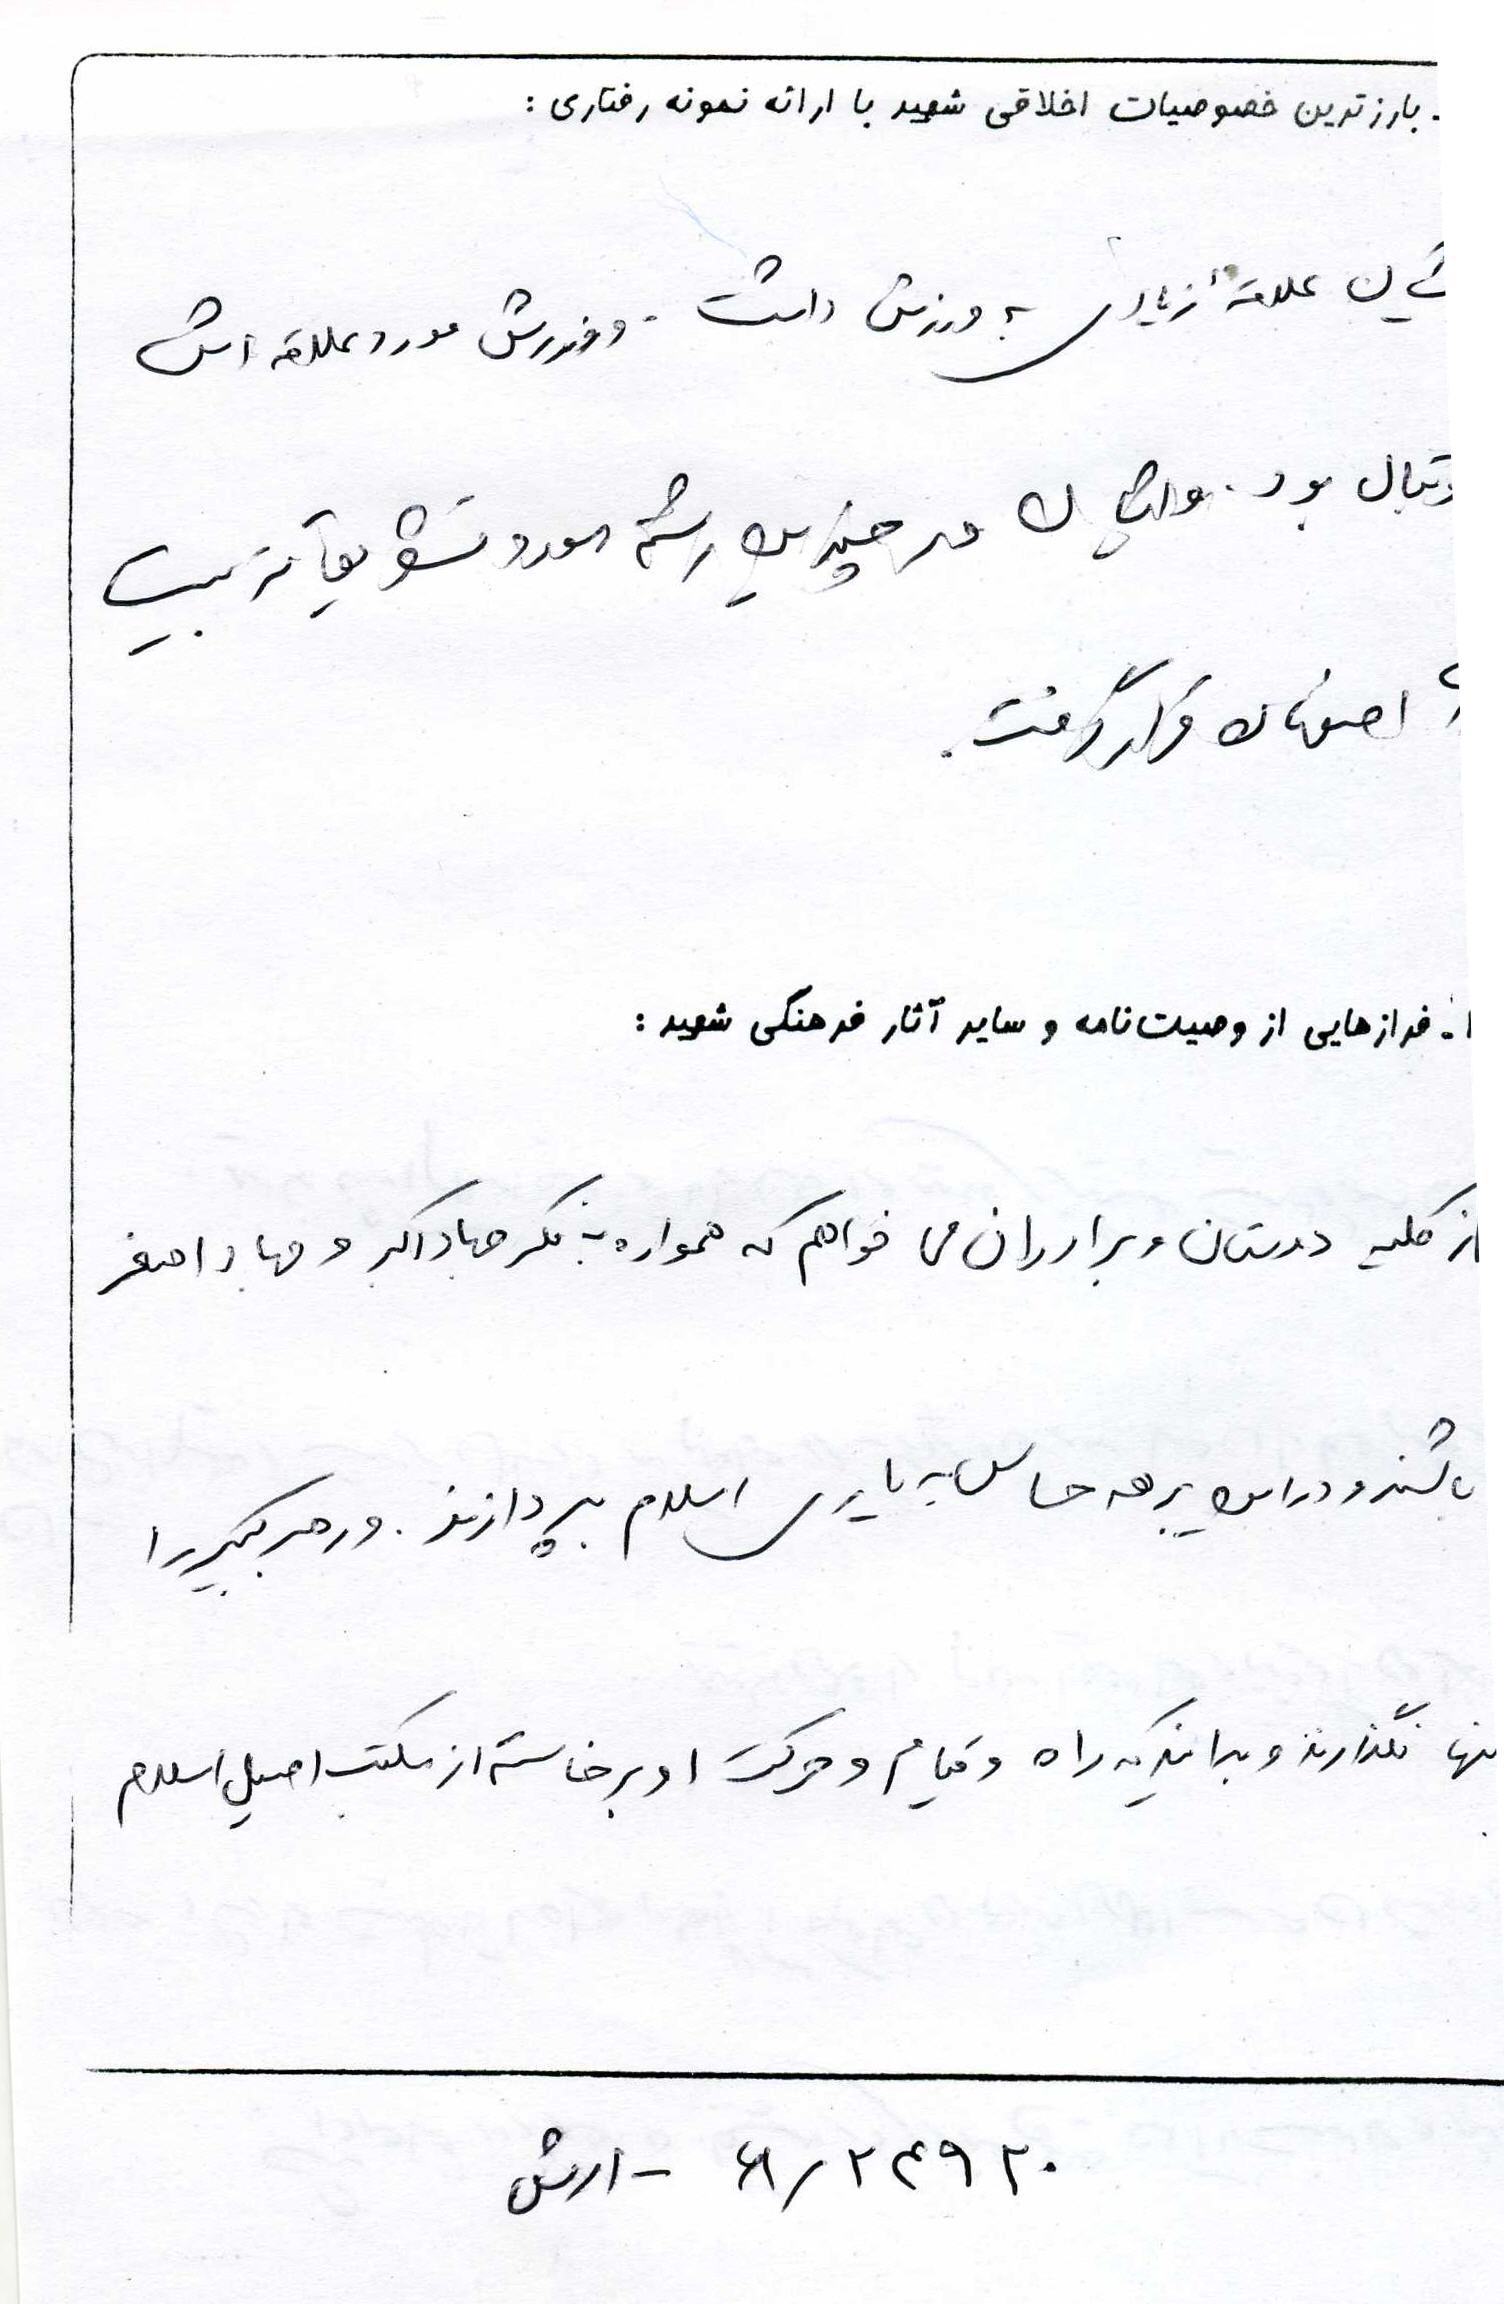 . بارزترین خصوصیات اخلاقی شهید با ارائه نمونه رفتاری :
علاقه زیادی به ورزش داشت . و ورزش مورد علاقه اش
بود . و ایشان در چندین رشته مورد تشویق تربیت
اصفهان قرار گرفت .
۱ ـ فرازهایی از وصیت‌نامه و سایر آثار فرهنگی شهید :
از کلیه دوستان و برادران می خواهم که همواره به فکر جهاد اکبر و جهاد اصغر
باشند و در این برهه حساس به یاری اسلام بپردازند . و رهبر کبیر را
تنها نگذارند و بدانند که راه و قیام و حرکت او برخاسته از مکتب اصیل اسلام
۶۱/۲۴۹۲۰ – ارتش